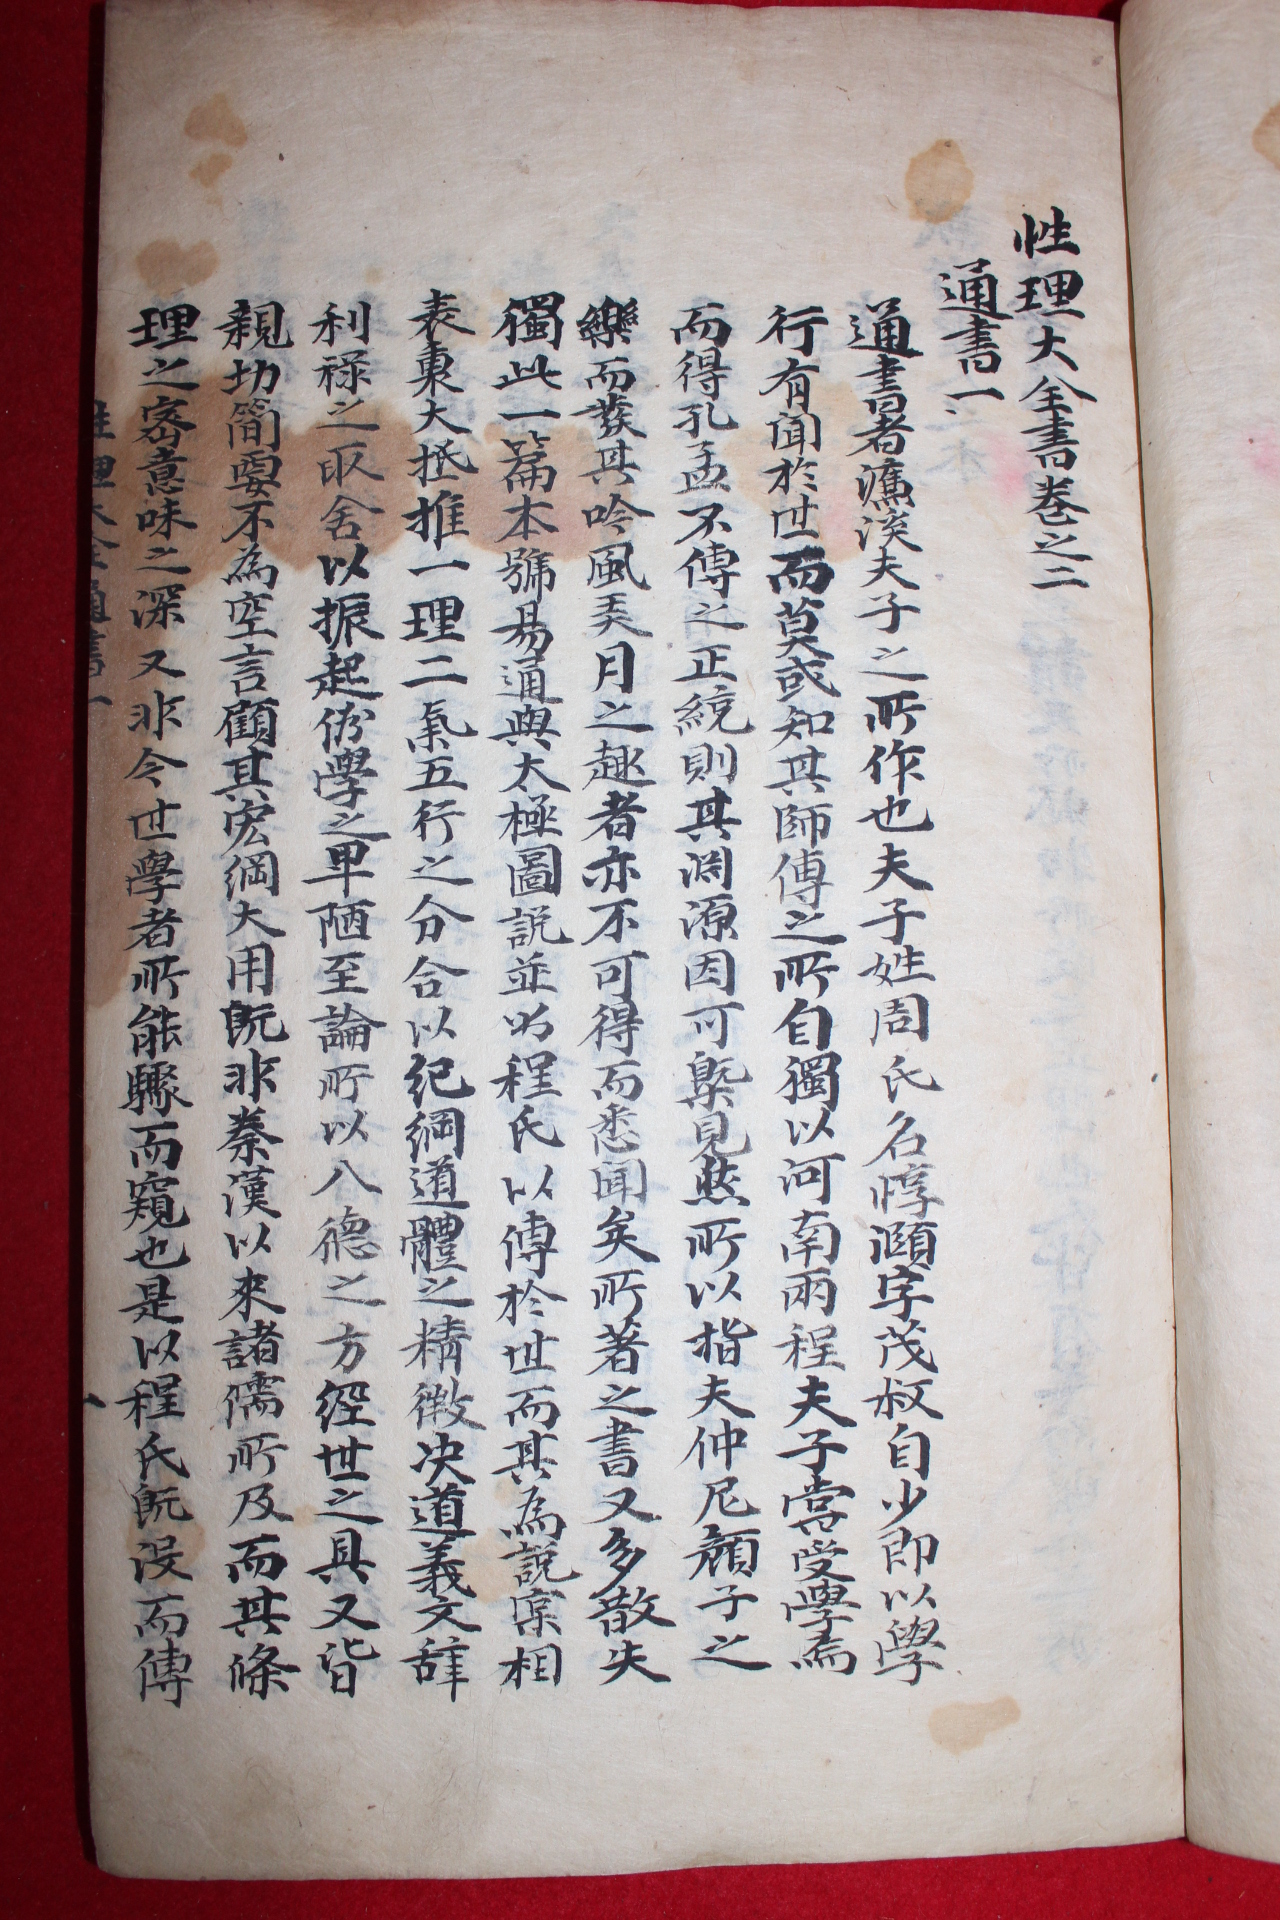 性理大全書卷之二
通書一
通書者濂溪夫子之所作也夫子姓周氏名惇頤字茂叔自少即以學
行有聞於世而莫或知其師傳之所自獨以河南兩程夫子嘗受學焉
而得孔孟不傳之正統則其淵源因可槩見然所以指夫仲尼顔子之
樂而發其吟風弄月之趣者亦不可得而悉聞矣所著之書又多散失
獨此一篇本號易通與太極圖說並出程氏以傳於世而其為說寔相
表裏大抵推一理二氣五行之分合以紀綱道體之精微决道義文辞
利禄之取舍以振起俗學之卑陋至論所以入德之方經世之具又皆
親切簡要不為空言顧其宏綱大用既非秦漢以來諸儒所及而其條
理之密意味之深又非今世學者所能驟而窺也是以程氏既沒而傳
性理大全通書一
一